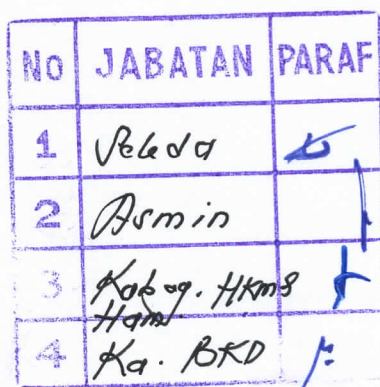 NO JABATAN PARAF
1 Sekda
2 Asmin
3 Kabag. HKms
Ham
4 Ka. BKD